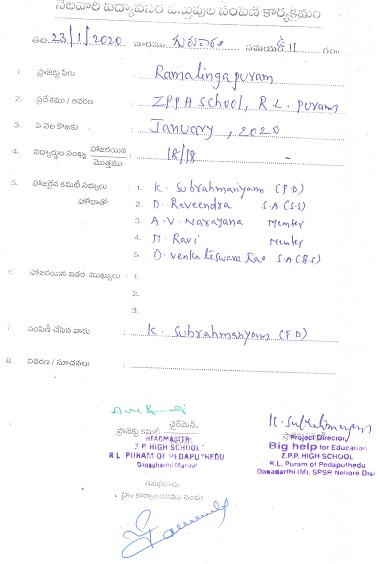 నెలవారీ విద్యావసర వస్తువుల పంపిణీ కార్యక్రమం
తేది: 23/1/2020 వారము గురువారం సమయం 11 గం॥
1. ప్రాజెక్టు పేరు : Ramalingapuram
2. ప్రదేశము / ఆవరణ : ZPPH School, R.L. Puram
3. ఏ నెల కొఱకు : January, 2020
4. విద్యార్థుల సంఖ్య హాజరయిన / మొత్తము : 18/18
5. హాజరైన కమిటీ సభ్యులు హోదాతో : 1. K. Subrahmanyam (P.D)
2. D. Raveendra S.A (S.S)
3. A.V. Narayana Member
4. M. Ravi Member
5. D. Venkateswara Rao S.A (B.S)
6. హాజరయిన ఇతర ముఖ్యులు : 1.
2.
3.
7. పంపిణీ చేసిన వారు : K. Subrahmanyam (P.D)
8. వివరణ / సూచనలు :
చైర్మెన్,
ప్రాజెక్టు కమిటీ
HEADMASTER
Z.P. HIGH SCHOOL
R.L PURAM OF PEDAPUTHEDU
Dagadharthi Mandal
K. Subrahmanyam
Project Director
Big help for Education
Z.P.P. HIGH SCHOOL
R.L. Puram of Pedaputhedu
Dagadarthi (M), SPSR Nellore Dist